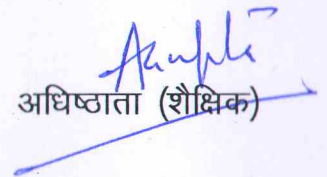 अधिष्ठाता (शैक्षिक)